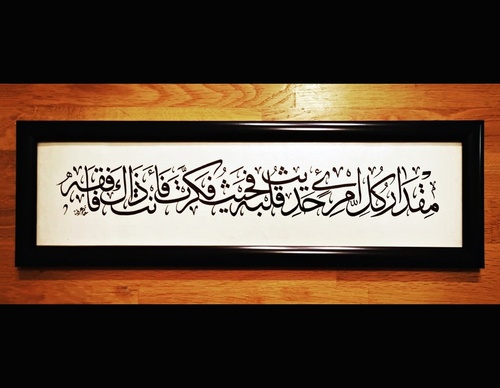 مِقْدَار كُل امرئ حَديث قلبه فحيث فكرت فأنت ذاك فافقه